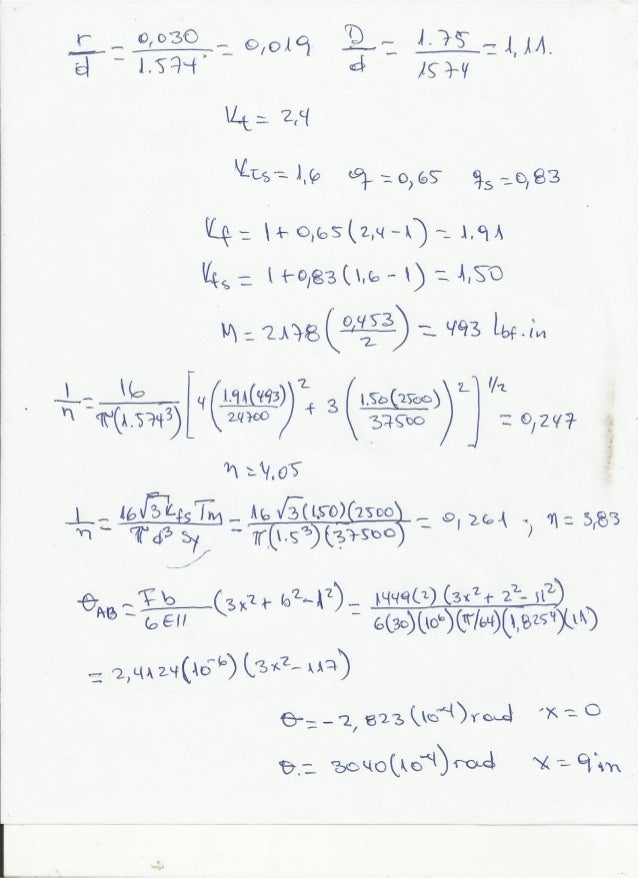 r/d = 0,030/1.574 = 0,019   D/d = 1.75/1574 = 1,11.
Kt = 2,4
Kts = 1,6   q = 0,65   qs = 0,83
Kf = 1 + 0,65(2,4 - 1) = 1.91
Kfs = 1 + 0,83(1,6 - 1) = 1,50
M = 2178(0,453/2) = 493 lbf.in
1/n = 16/π(1.574³) [4(1.91(493)/24700)² + 3(1.50(2500)/37500)²]^1/2 = 0,247
n = 4.05
1/n = 16√3 Kfs Tm/π d³ Sy = 16√3(1,50)(2500)/π(1.5³)(37500) = 0,261 ; n = 3,83
θAB = Fb/6EIl (3x² + b² - l²) = 1449(2)(3x² + 2² - 11²)/6(30)(10⁶)(π/64)(1,825⁴)(11)
= 2,4124(10⁻⁶)(3x² - 117)
θ = -2,823(10⁻⁴) rad   x = 0
θ. = 3040(10⁻⁴) rad   x = 9in